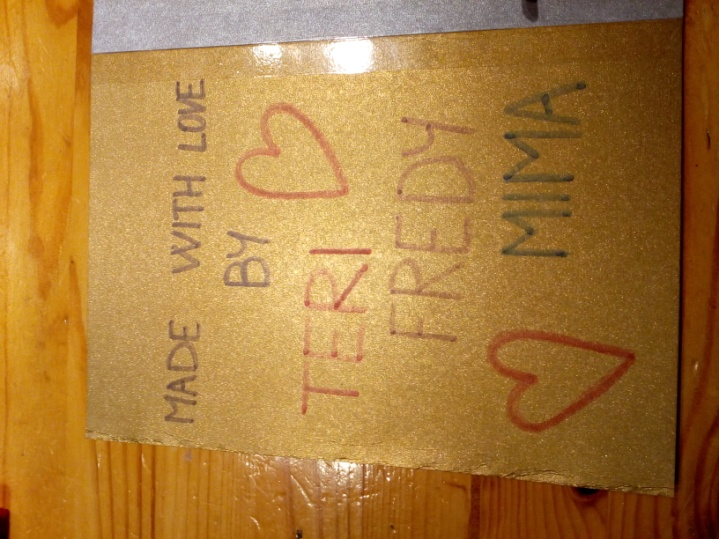 MADE WITH LOVE
BY
TERI
FREDY
MIMA